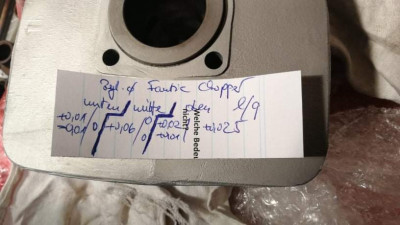 Zyl. ø Fantic Chopper
unten / mitte / oben l/q
+0,01/0 +0,06/0 +0,02 +0,025
-0,01 0 +0,01
Welche Bedeu
nicht?